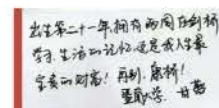 出生第二十一年,拥有的周在剑桥
学习、生活的记忆,还是我人生最
宝贵的财富!再别,康桥!